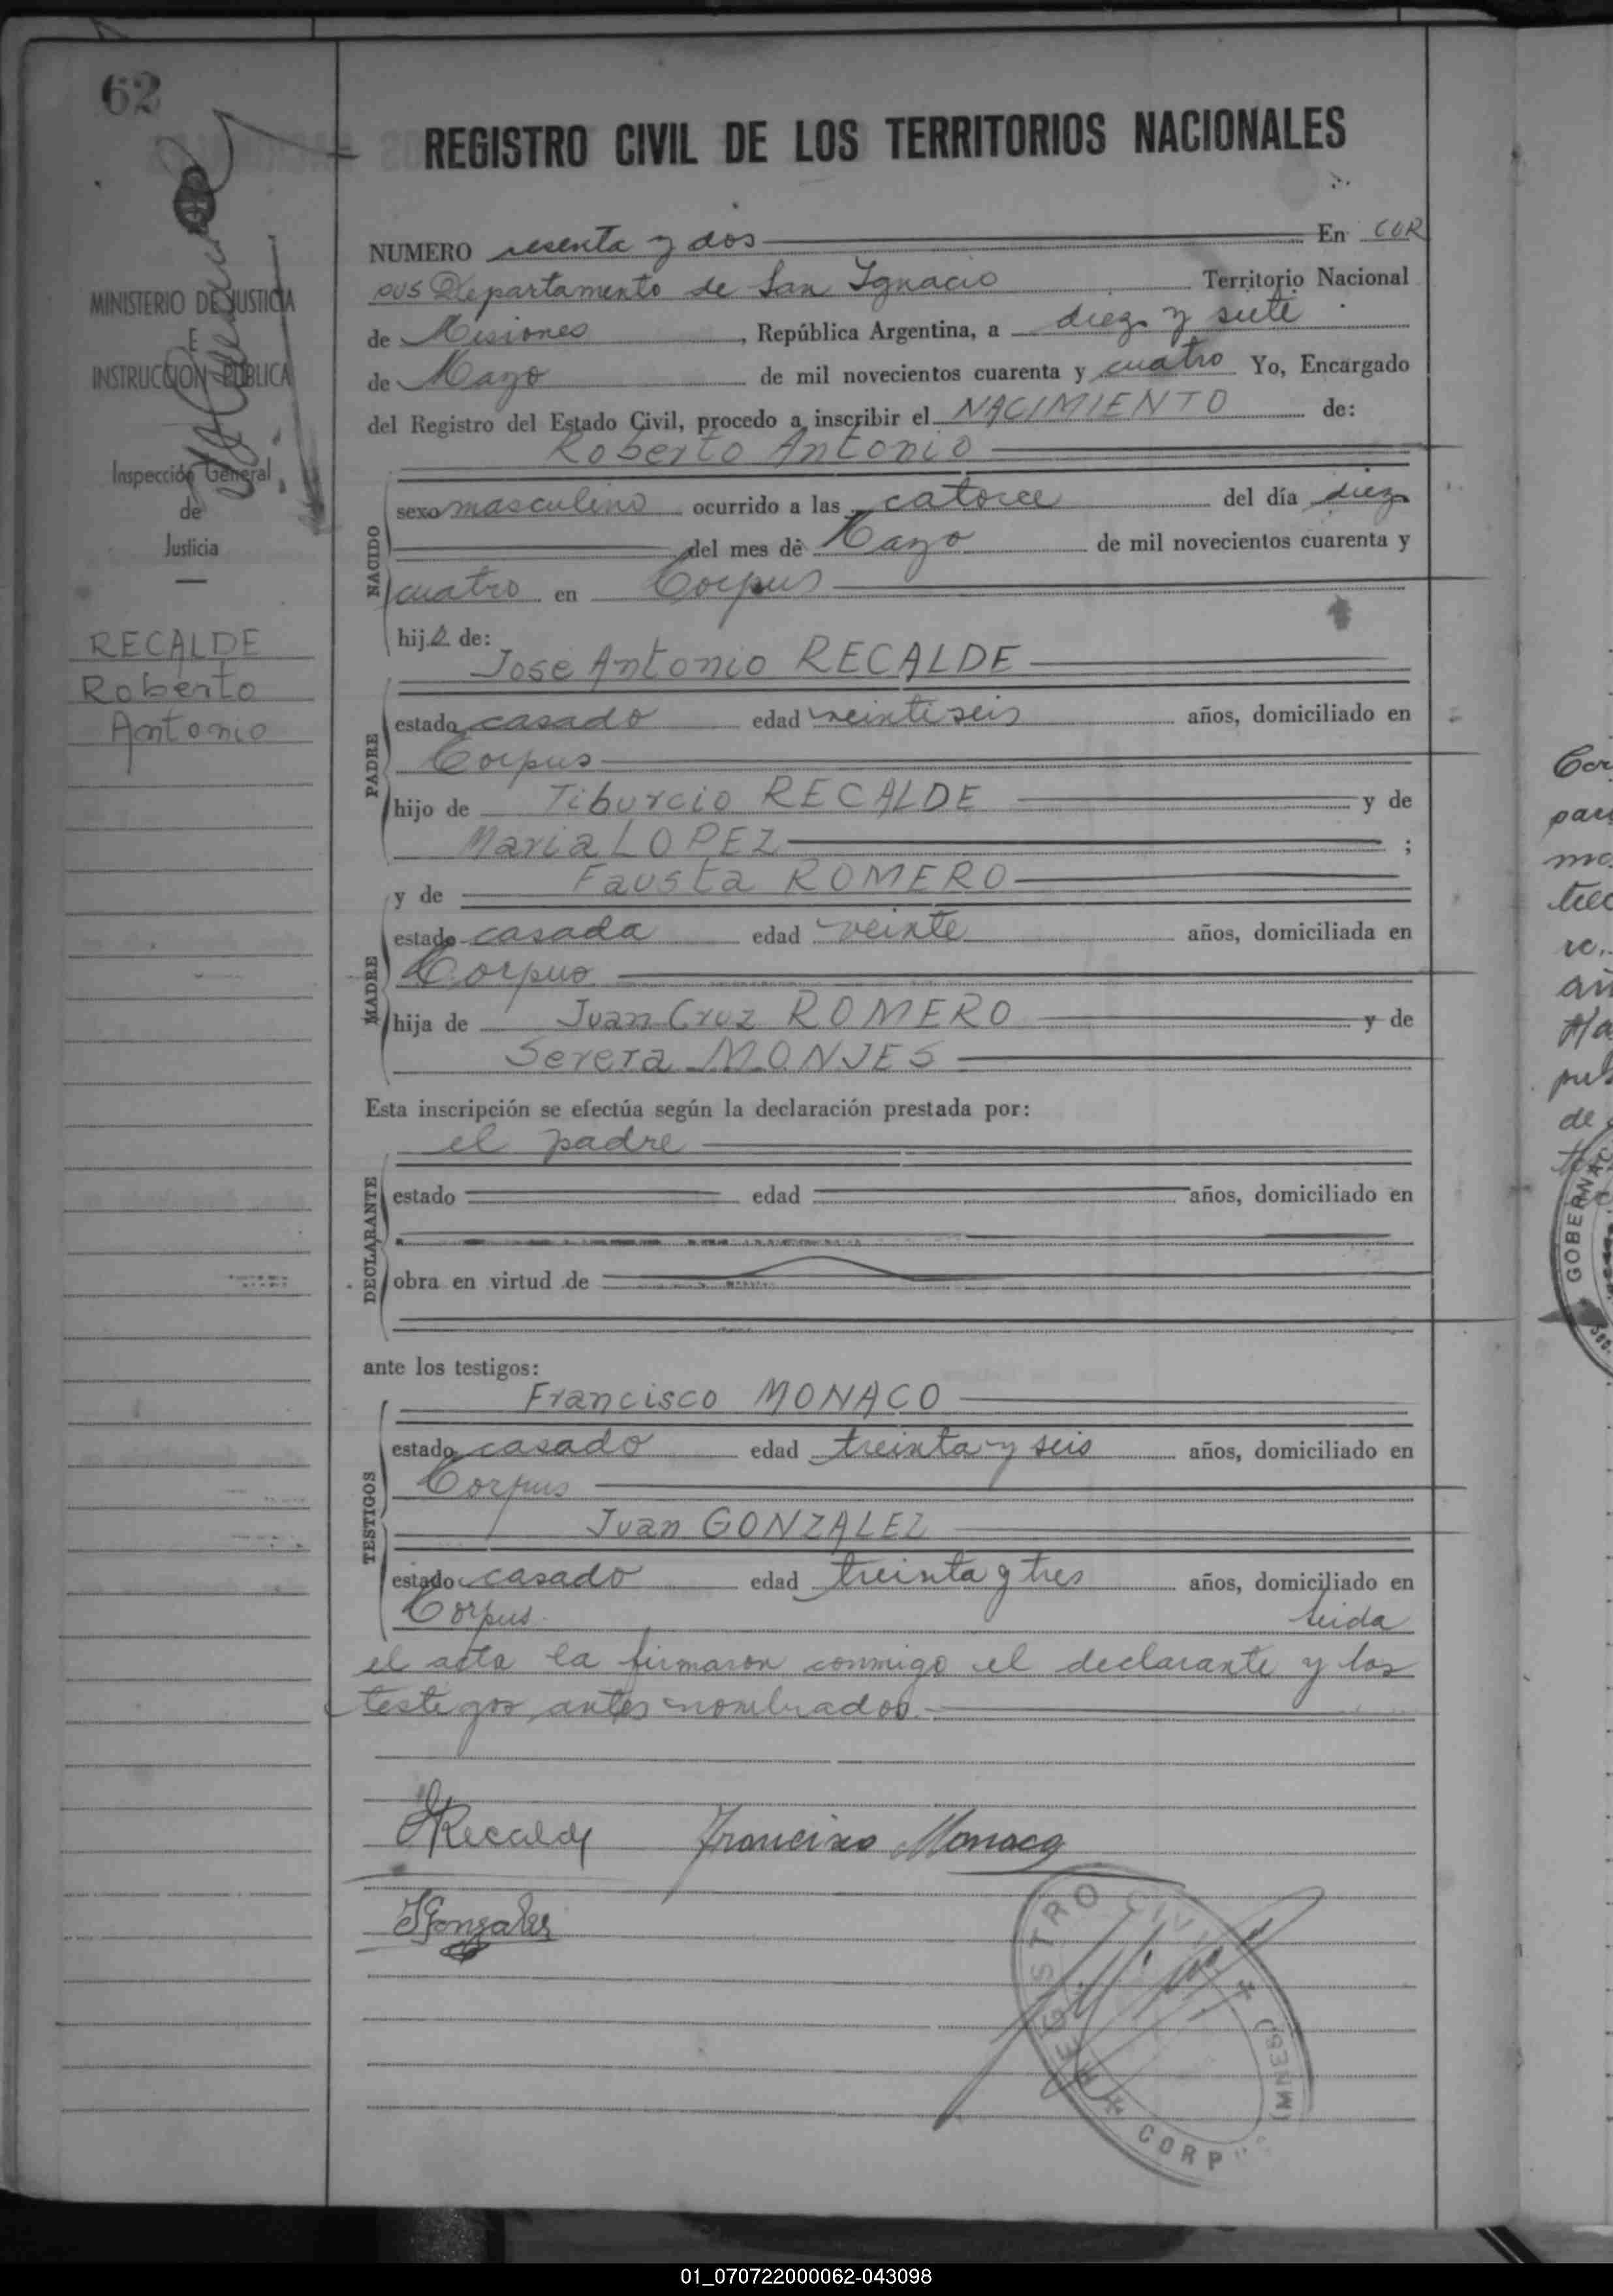 62
REGISTRO CIVIL DE LOS TERRITORIOS NACIONALES
MINISTERIO DE JUSTICIA
E
INSTRUCCION PUBLICA
Inspección General
de
Justicia
RECALDE
Roberto
Antonio
NUMERO sesenta y dos En COR
PUS Departamento de San Ignacio Territorio Nacional
de Misiones, República Argentina, a diez y siete
de Mayo de mil novecientos cuarenta y cuatro Yo, Encargado
del Registro del Estado Civil, procedo a inscribir el NACIMIENTO de:
Roberto Antonio
NACIDO
sexo masculino ocurrido a las catorce del día diez
del mes de Mayo de mil novecientos cuarenta y
cuatro en Corpus
hijo de:
José Antonio RECALDE
PADRE
estado casado edad veintiseis años, domiciliado en
Corpus
hijo de Tiburcio RECALDE y de
Maria LOPEZ ;
y de Fausta ROMERO
MADRE
estado casada edad veinte años, domiciliada en
Corpus
hija de Juan Cruz ROMERO y de
Severa MONJES
Esta inscripción se efectúa según la declaración prestada por:
el padre
DECLARANTE
estado edad años, domiciliado en
obra en virtud de
ante los testigos:
Francisco MONACO
TESTIGOS
estado casado edad treinta y seis años, domiciliado en
Corpus
Juan GONZALEZ
estado casado edad treinta y tres años, domiciliado en
Corpus. Leida
el acta la firmaron conmigo el declarante y los
testigos antes nombrados.-
Recalde Francisco Monaco
JGonzalez
REGISTRO CIVIL
CORPUS
GOBERNAC
01_070722000062-043098